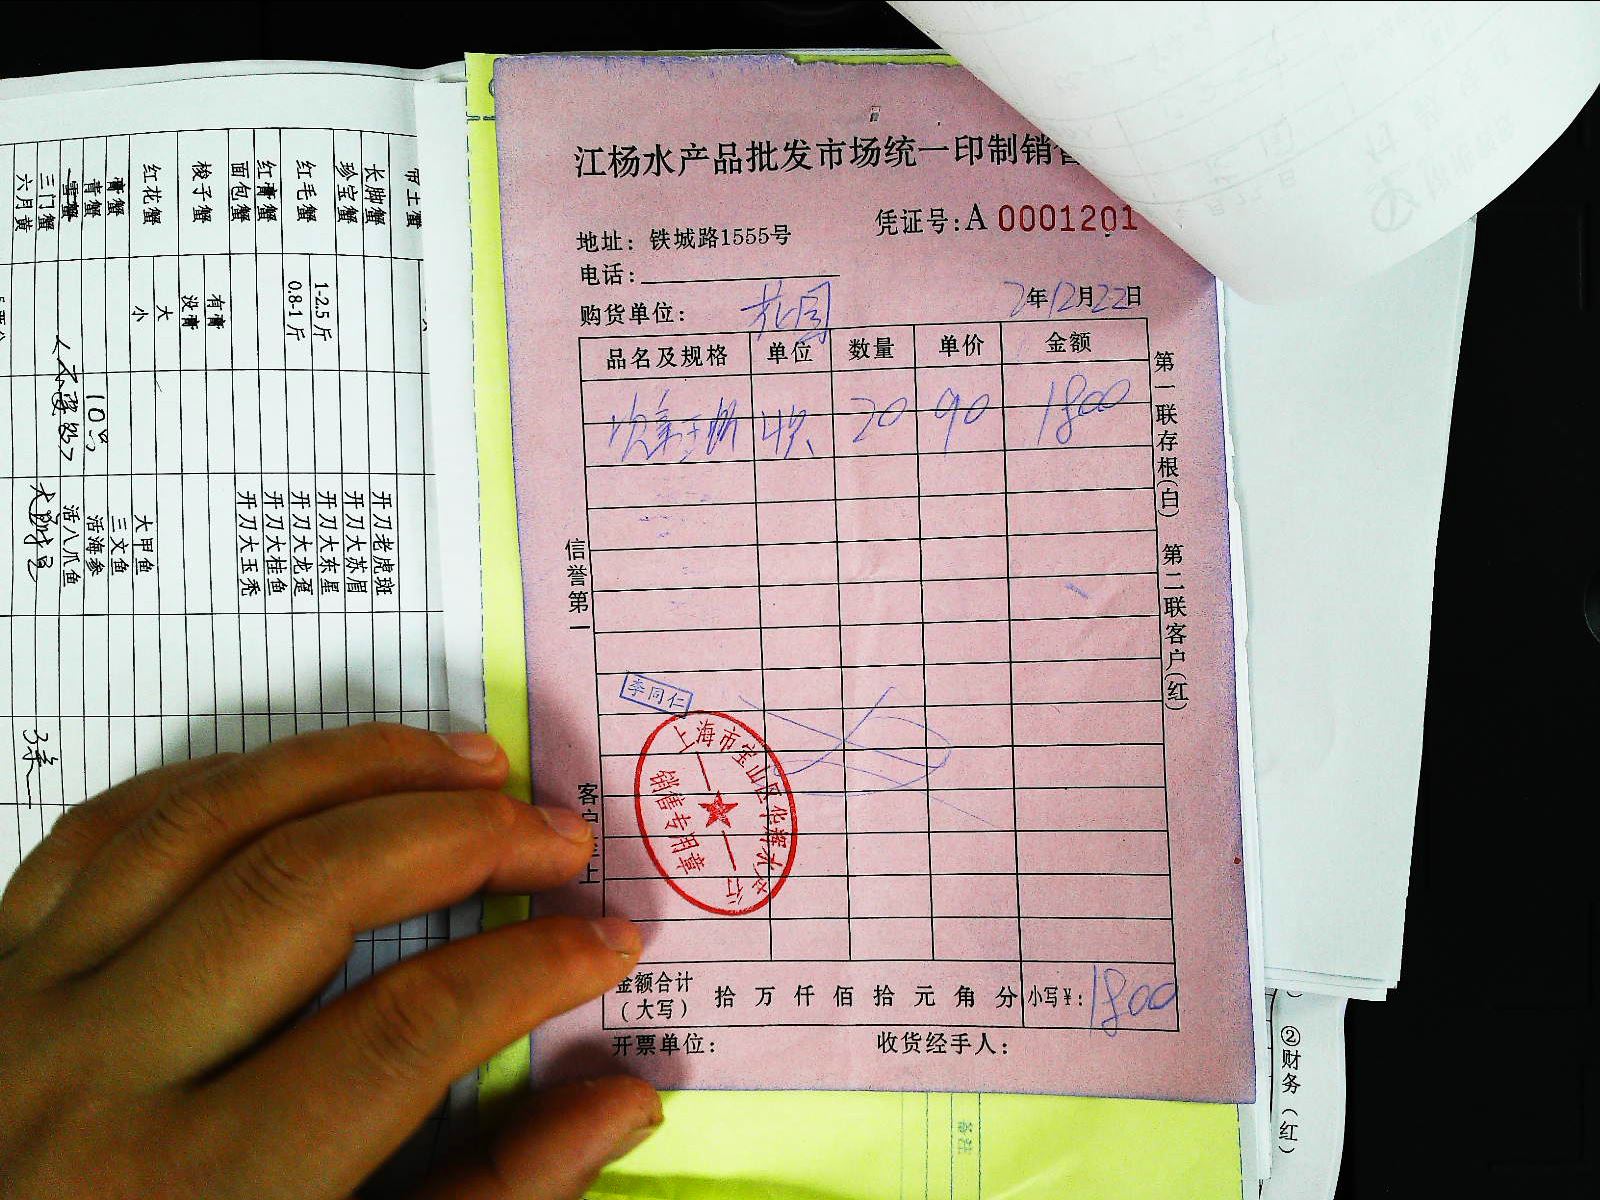 江杨水产品批发市场统一印制销售
凭证号:A 0001201
地址: 铁城路1555号
电话:
购货单位: 花园
2年12月22日
品名及规格 单位 数量 单价 金额
20 90 1800
第一联存根(白) 第二联客户(红)
信誉第一
客户至上
李同仁
上海市宝山区华辉水产行
销售专用章
金额合计(大写) 拾 万 仟 佰 拾 元 角 分 小写¥: 1800
开票单位: 收货经手人:
长脚蟹
珍宝蟹
红毛蟹 1-2.5斤
0.8-1斤
红膏蟹
面包蟹
梭子蟹 有膏
没膏
红花蟹 大
小
膏蟹
青蟹
雪蟹
三门蟹
六月黄
10只
开刀老虎斑
开刀大苏眉
开刀大东星
开刀大龙趸
开刀大桂鱼
开刀大玉秃
大甲鱼
三文鱼
活海参
活八爪鱼
②财务(红)
备注